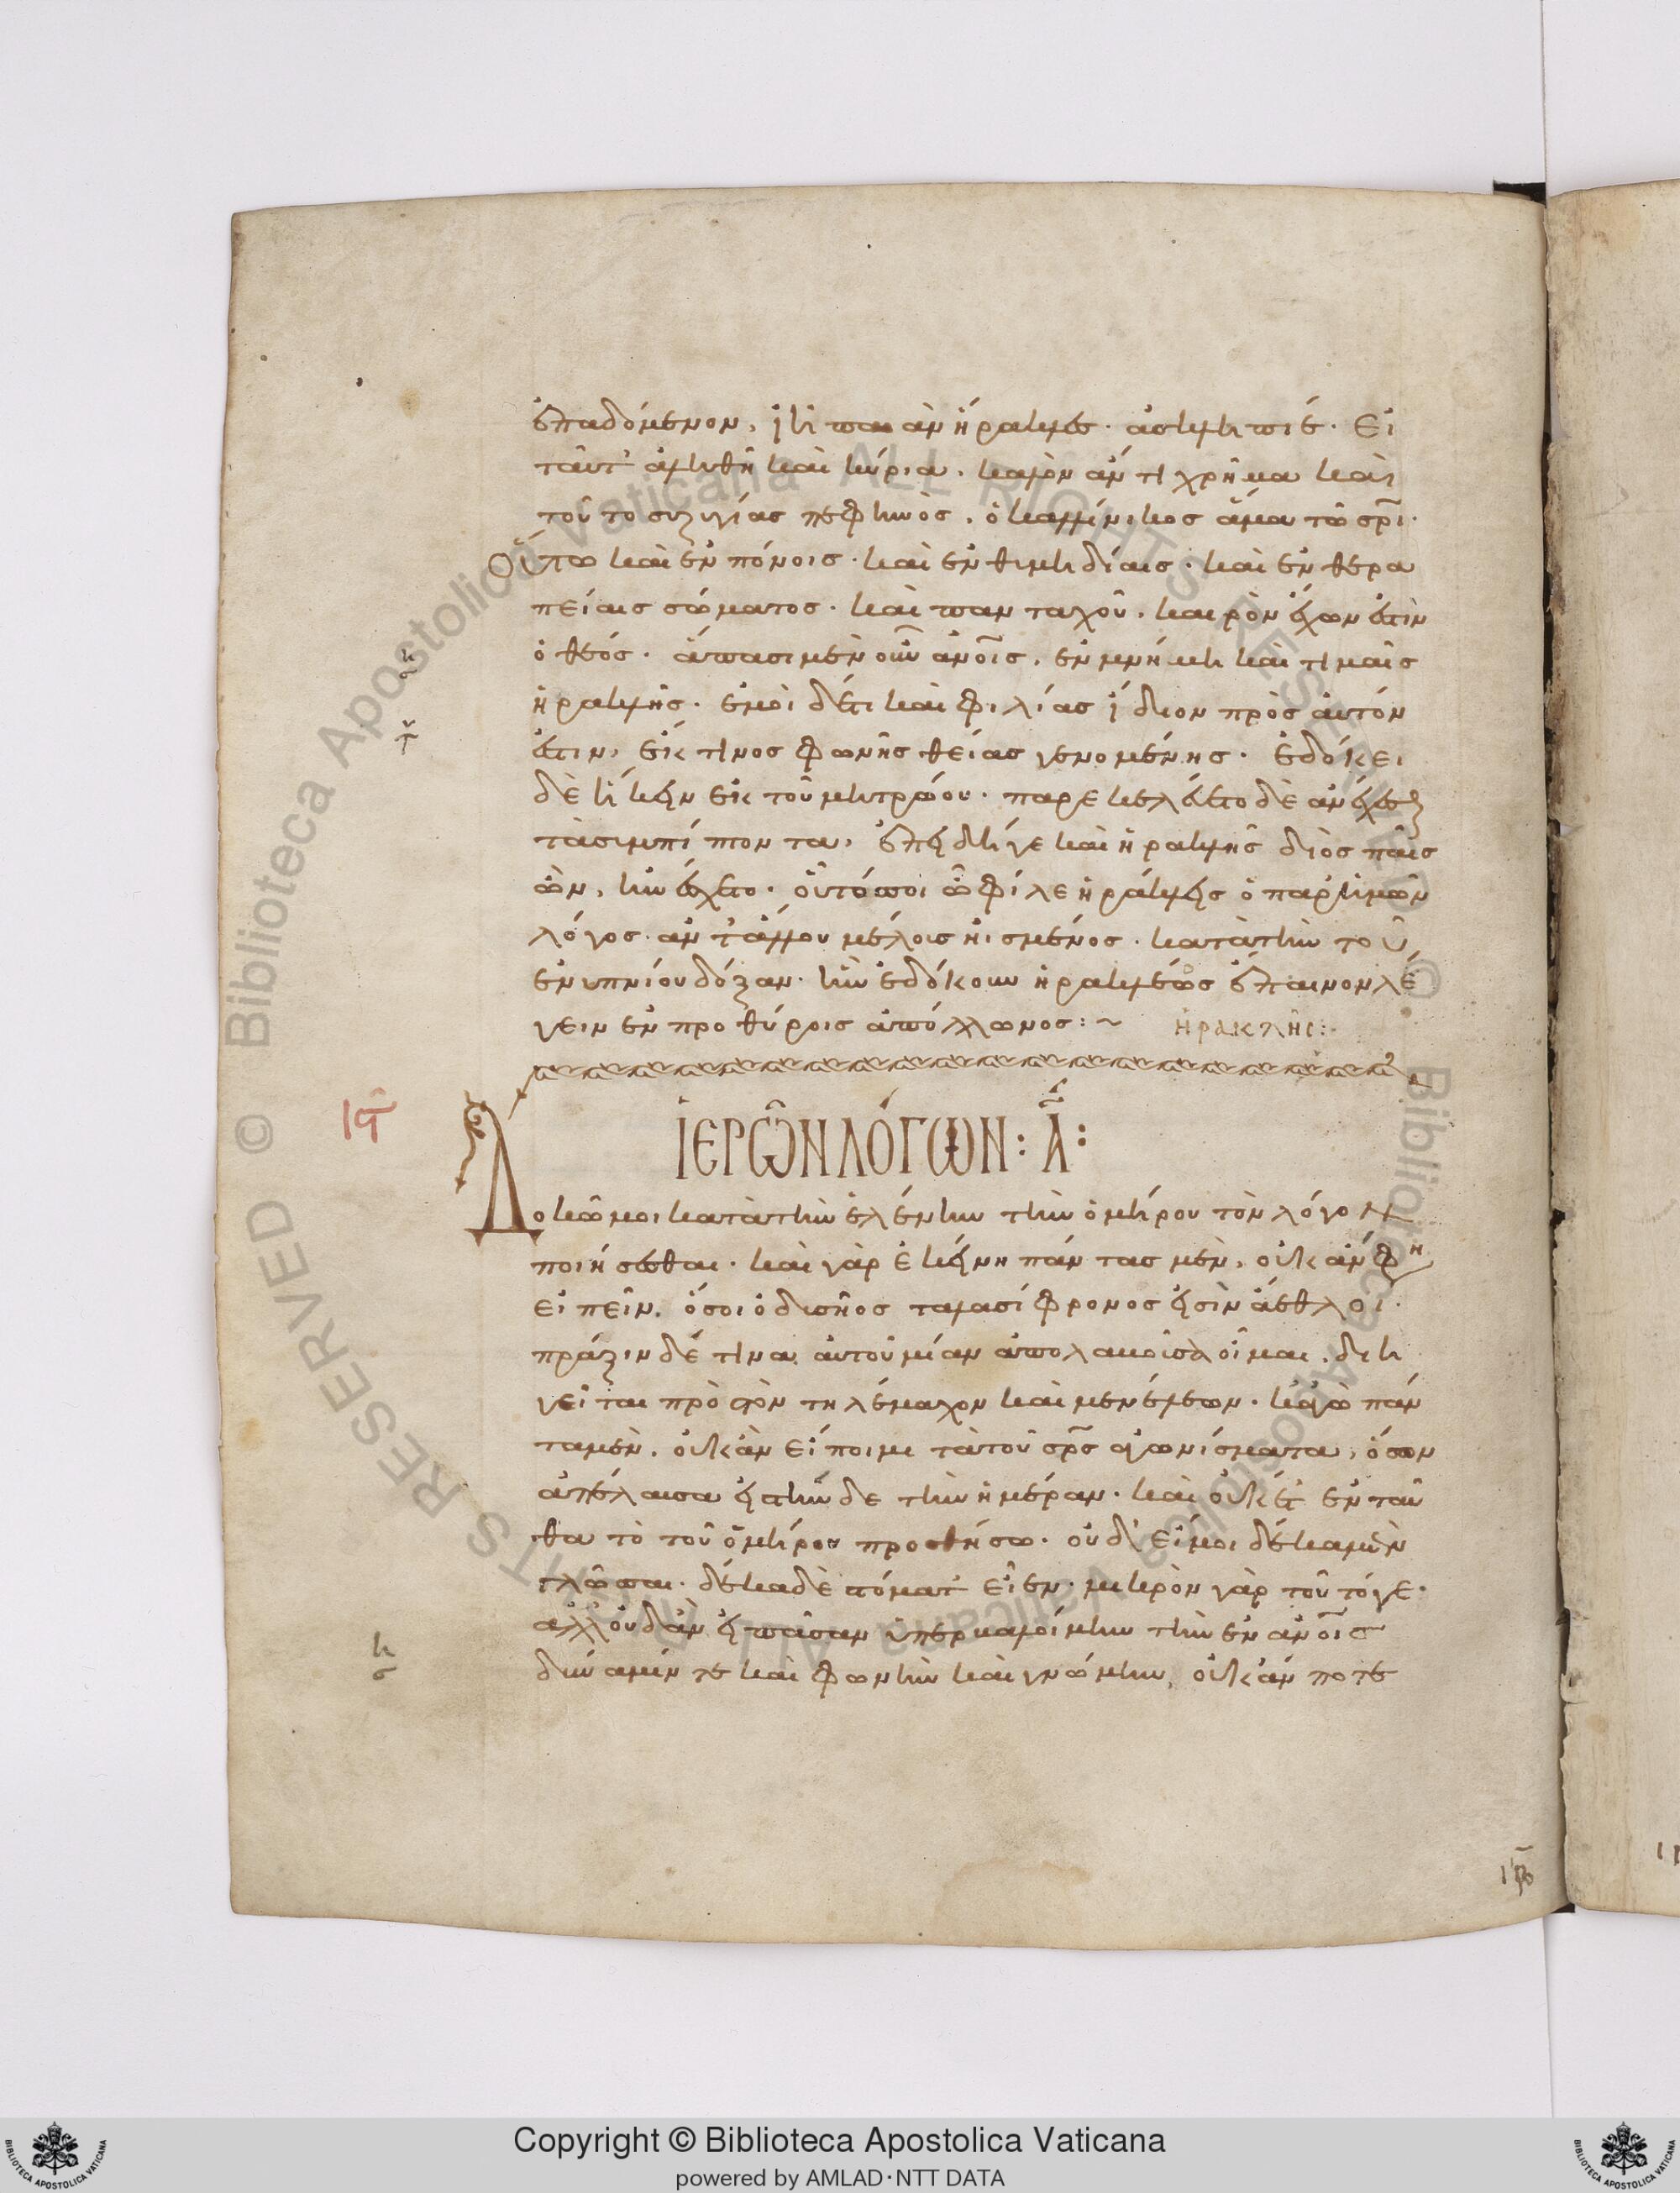 ἐπαδόμενον, ἰὴ παιὰν ἡράκλες· ἀσκληπιέ· εἰ
ταῦτ' ἀληθῆ καὶ κύρια, καλὸν ἄν τι χρῆμα καὶ
τοῦτο συζυγίας πεφηνὸς, ὁ καλλίνικος ἅμα τῷ σρι·
Οὕτω καὶ ἐν πόνοις· καὶ ἐν θυμηδίαις· καὶ ἐν θερα
πείαις σώματος· καὶ πανταχοῦ, καιρὸν ἔχων ἐστὶν
ὁ θεός· ἅπασι μὲν οὖν ἀνοις, ἐν μνήμῃ καὶ τιμαῖς
ἡρακλῆς· ἐμοὶ δέ τι καὶ φιλίας ἴδιον πρὸς αὐτόν
ἐστιν, ἔκ τινος φωνῆς θείας γενομένης· ἐδόκει
δὲ ἥκειν ἐκ τοῦ μητρῴου· παρεκελεύετο δὲ ἀνέχεσθ
τὰ συμπίπτοντα, ἐπειδή γε καὶ ἡρακλῆς διὸς παῖς
ὢν, ἠνέσχετο· οὗτός σοι ὦ φίλε ἡράκλεις ὁ παρ' ἡμῶν
λόγος ἀντ' ἄλλου μέλους ᾑσμένος· κατὰ τὴν τοῦ
ἐνυπνίου δόξαν· ἣν ἐδόκουν ἡρακλέως ἔπαινον λέ
γειν ἐν προθύροις ἀπόλλωνος:~ ἡρακλῆς:
ΙΕΡῶΝ ΛόΓΩΝ: Α:
Δοκῶ μοι κατὰ τὴν ἑλένην τὴν ὁμήρου τὸν λόγον
ποιήσεσθαι· καὶ γὰρ ἐκείνη πάντας μὲν, οὐκ ἄν φη
εἰπεῖν, ὅσοι ὀδυσῆος ταλασίφρονος εἰσὶν ἄεθλοι·
πρᾶξιν δέ τινα αὐτοῦ μίαν ἀπολαβοῦσα οἶμαι, διη
γεῖται πρὸς τὸν τηλέμαχον καὶ μενέλεων· κἀγὼ πάν
τα μὲν, οὐκ ἂν εἴποιμι τὰ τοῦ σρς ἀγωνίσματα, ὅσων
ἀπέλαυσα εἰς τήνδε τὴν ἡμέραν· καὶ οὐκέτ' ἐνταῦ
θα τὸ τοῦ ὁμήρου προσθήσω· οὐδ' εἴ μοι δέκα μὲν
γλῶσσαι· δέκα δὲ στόματ' εἶεν· μικρὸν γὰρ τοῦτό γε·
ἀλλ' οὐδ' ἂν εἰ πᾶσαν ὑπερβαλοίμην τὴν ἐν ἀνοις
δύναμίν τε καὶ φωνὴν καὶ γνώμην, οὐκ ἄν ποτε
Copyright © Biblioteca Apostolica Vaticana
powered by AMLAD·NTT DATA